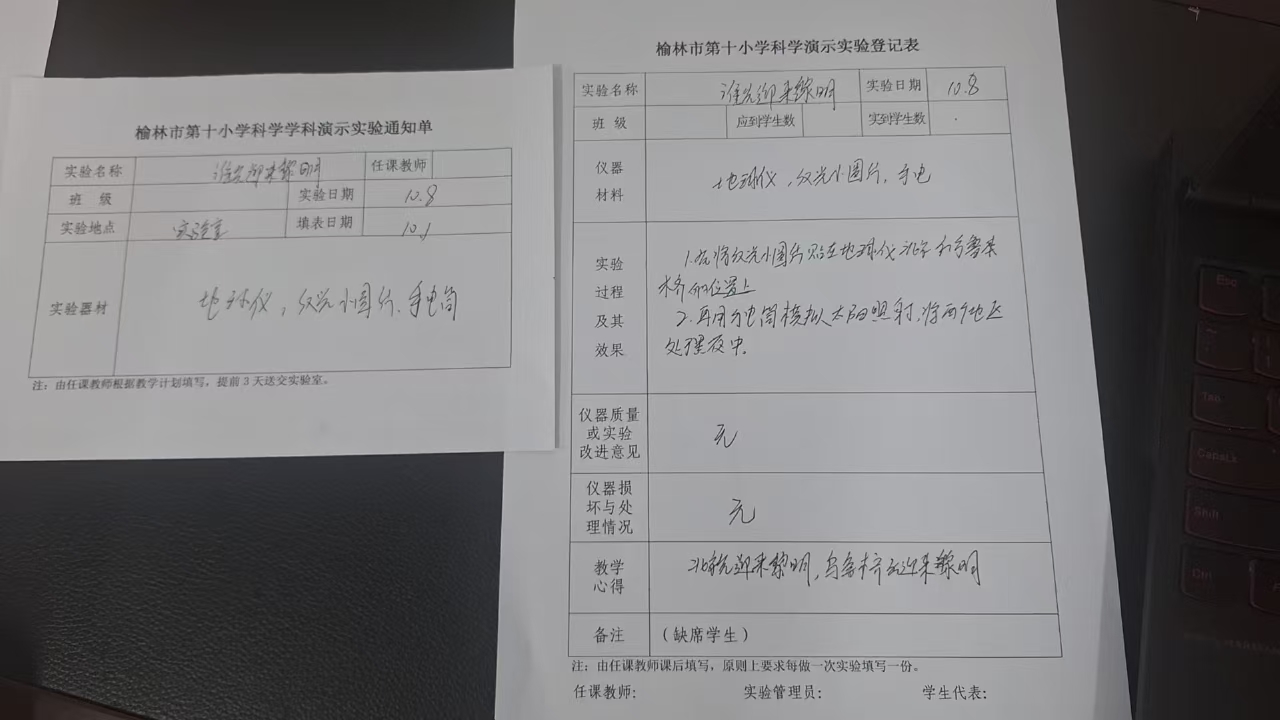 榆林市第十小学科学学科演示实验通知单
实验名称 谁先迎来黎明 任课教师
班 级 实验日期 10.8
实验地点 实验室 填表日期 10.1
实验器材 地球仪，反光小圆片、手电筒
注：由任课教师根据教学计划填写，提前3天送交实验室。
榆林市第十小学科学演示实验登记表
实验名称 谁先迎来黎明 实验日期 10.8
班 级 应到学生数 实到学生数
仪器材料 地球仪，反光小圆片，手电
实验过程及其效果
1.先将反光小圆片贴在地球仪北京和乌鲁木
齐的位置上
2.再用手电筒模拟太阳照射，将两个地区
处理夜中。
仪器质量或实验改进意见 无
仪器损坏与处理情况 无
教学心得 北京先迎来黎明，乌鲁木齐后迎来黎明
备注 （缺席学生）
注：由任课教师课后填写，原则上要求每做一次实验填写一份。
任课教师: 实验管理员: 学生代表:
Esc
Tab
CapsLk
Shift
Ctrl